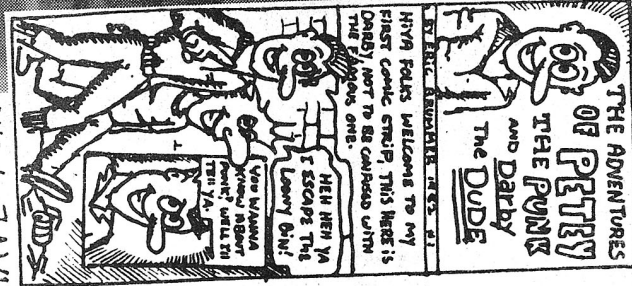 THE ADVENTURES
OF PETEY
THE PUNK
AND Darby
The DUDE
BY ERIC
HIYA FOLKS WELCOME TO MY
FIRST COMIC STRIP, THIS HERE IS
DARBY, NOT TO BE CONFUSED WITH
THE FAMOUS ONE.
HEH HEH YA
I ESCAPE THE
LOONY BIN!
YOU WANNA
KNOW ABOUT
PUNK? WELL I'LL
TELL YA